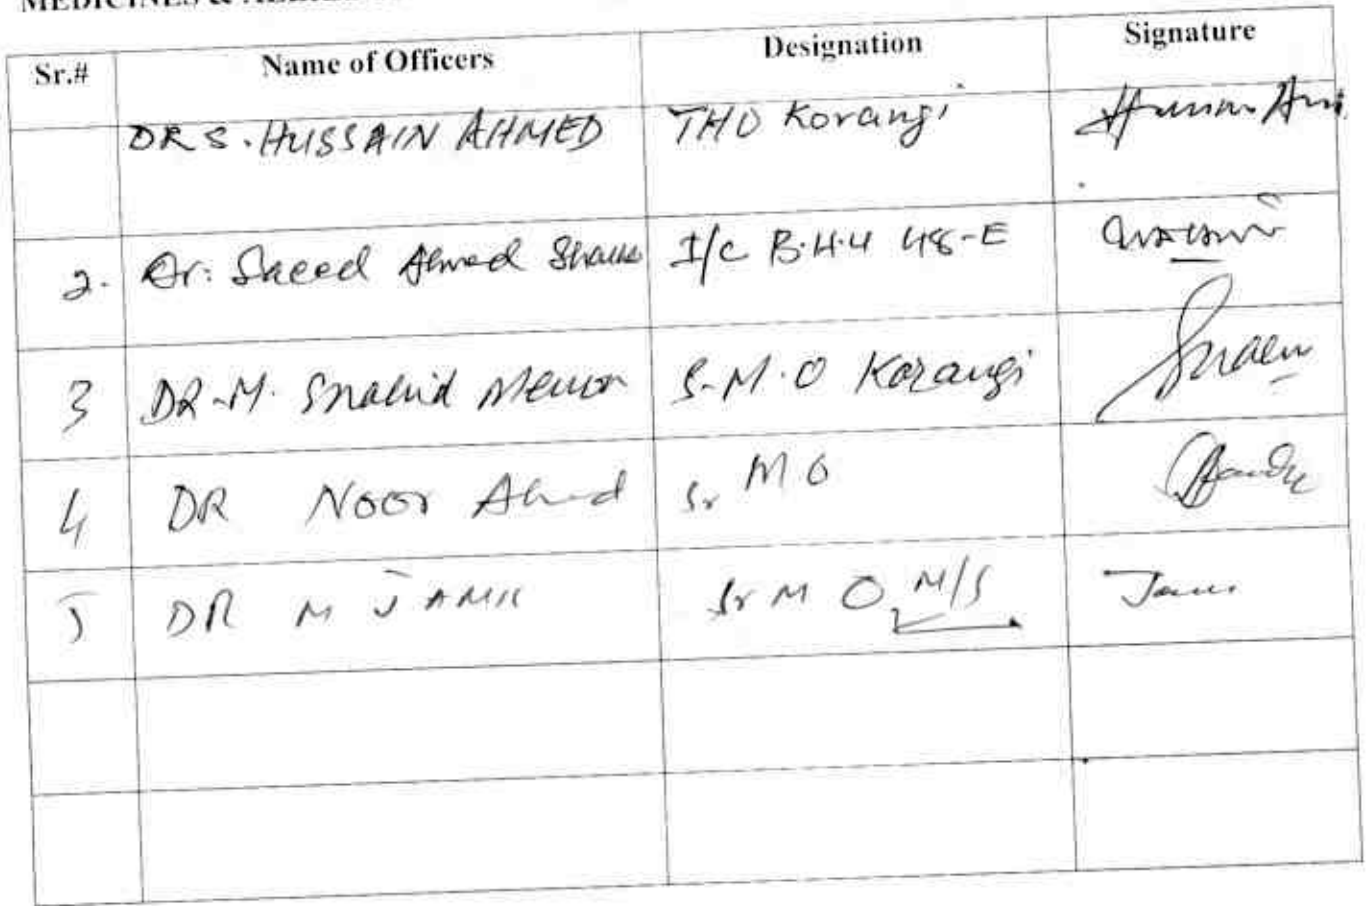 MEDICINES &
Sr.# Name of Officers Designation Signature
DR S. HUSSAIN AHMED THO Korangi
2. Dr: Saeed Ahmed I/C B.H.U 48-E
3 DR-M. Shahid Memon S.M.O Korangi
4 DR Noor Ahmed Sr M O
5 DR M JAMIL Sr M O M/S